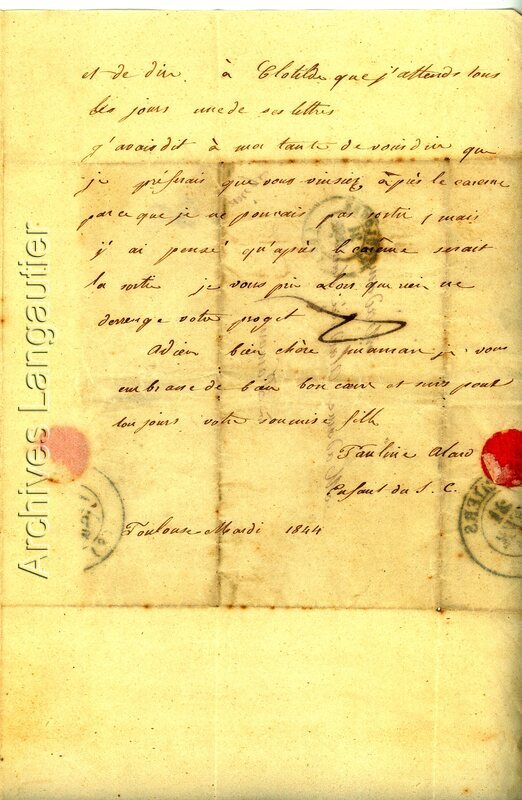 et de dire à Clotilde que j'attends tous
les jours une de ses lettres
j'avois dit à ma tante de vous dire que
je préferais que vous vinsiez après le careme
parce que je ne pouvais pas sortir, mais
j'ai pensé qu'après le carême serait
la sortie je vous prie alors que rien ne
derrenge votre proget
Adieu bien chère maman je vous
embrasse de bon coeur et suis pour
toujours votre soumise fille
Pauline Alard
Enfant du S. C.
Toulouse Mardi 1844
Archives Langautier